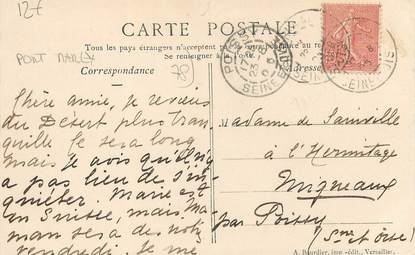 12€
CARTE POSTALE
PONT MARLY
78
Tous les pays étrangers n'acceptent pas
Se renseigner
Correspondance
Chère amie, je reviens
du Désert plus tran-
quille. Ce sera long
mais je crois qu'il n'y
a pas lieu de s'in-
quiéter. Marie est
en Suisse, mais Ma-
man sera des nôtres
vendredi. Je me
Madame de
à l'Hermitage
Migneaux
par Poissy
(Sne et Oise)
A. Bourdier, imp.-édit., Versailles